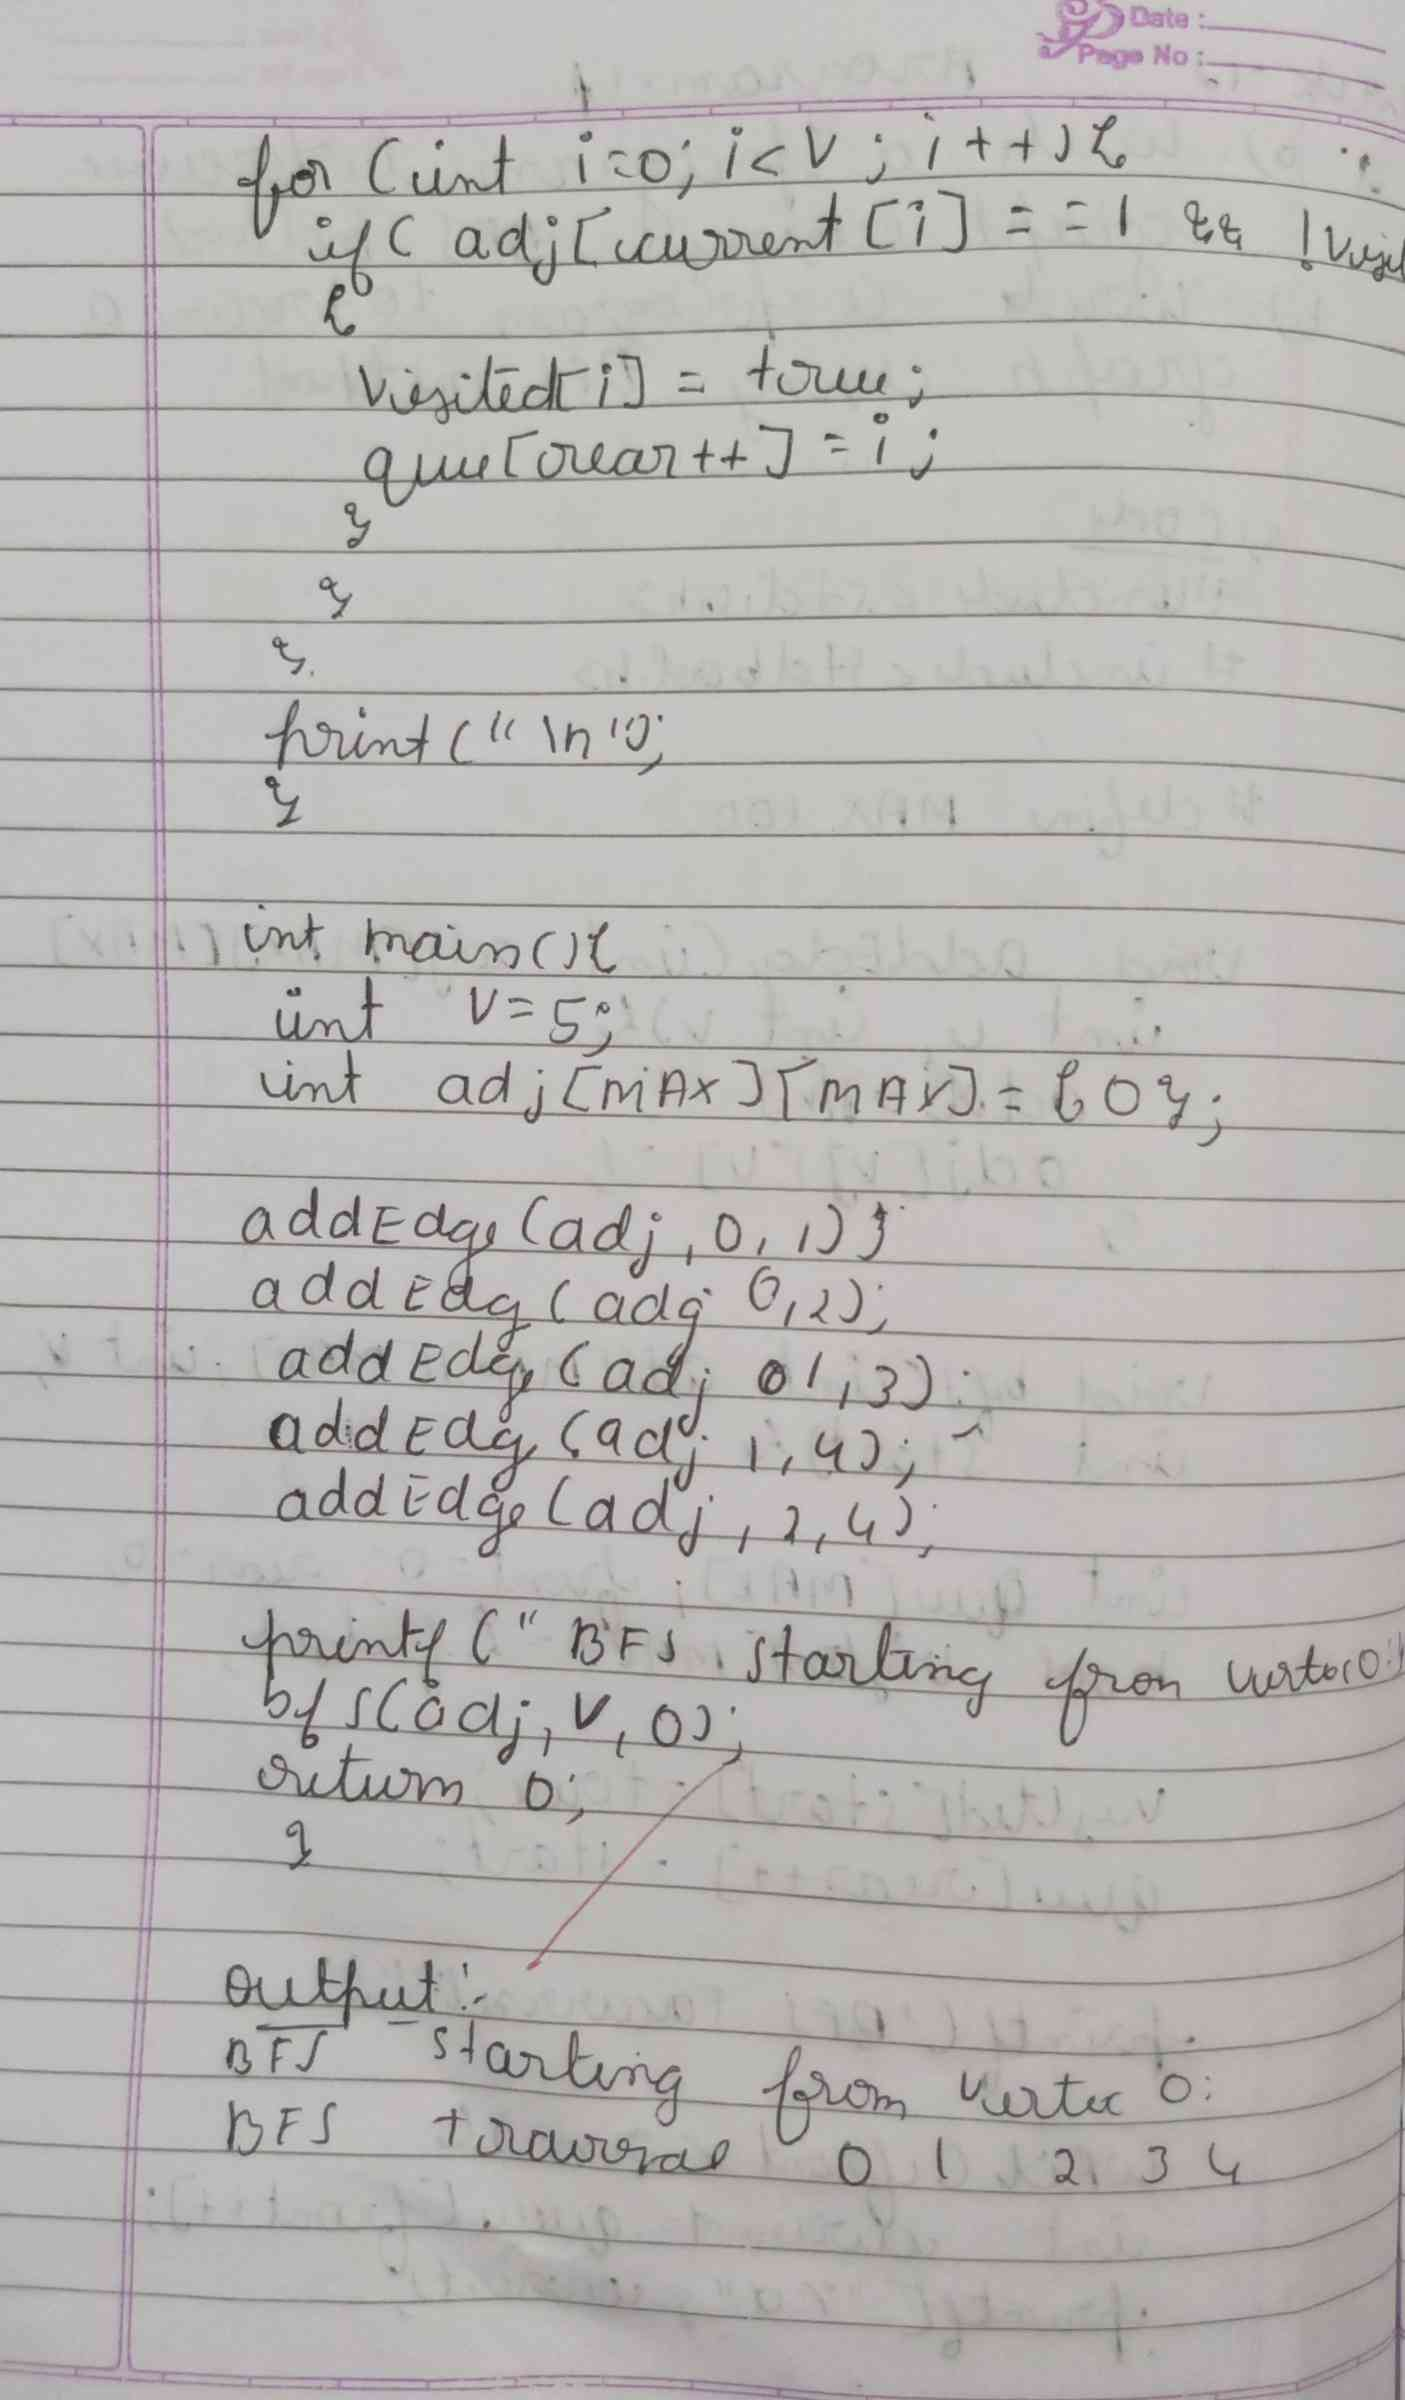 Date :
Page No :
for (int i=0; i<V ; i++){
if( adj[current[i] == 1 && !visi
{
visited[i] = true;
queue[rear++] = i;
}
}
}
print("\n");
}
int main(){
int V=5;
int adj[MAX][MAX] = {0};
addEdge(adj, 0, 1);
addEdg(adj 0,2);
addEdge(adj 01,3);
addEdg(adj 1,4);
addEdge(adj, 2,4);
printf(" BFS starting from
bfs(adj, V, 0);
return 0;
}
Output:-
BFS starting from vertex 0:
BFS traversal 0 1 2 3 4